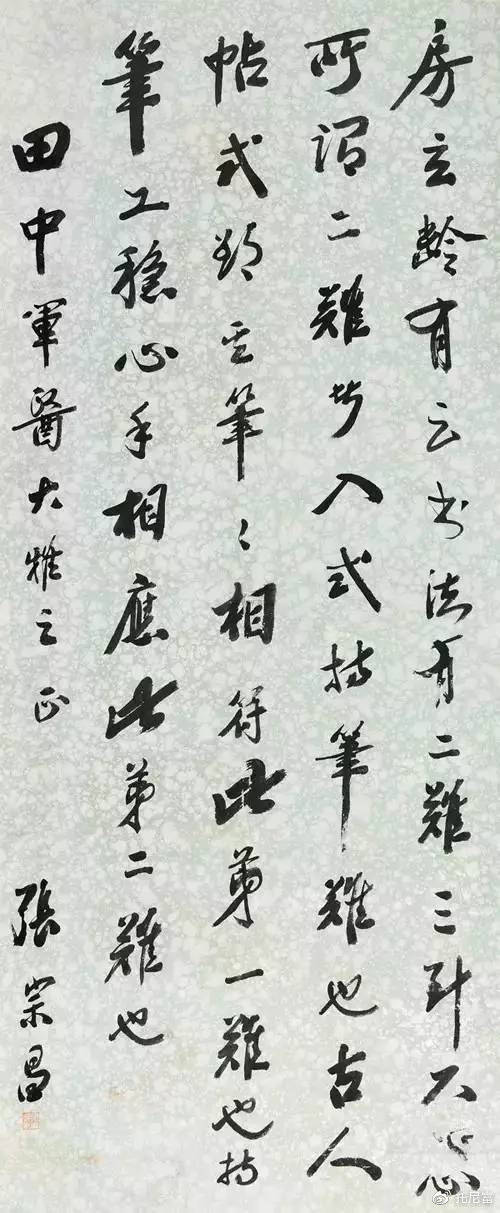 房玄齡有云书法有二難三斗不
所謂二難入式持筆難也古人
帖式筆々相符此第一難也持
筆工穩心手相應此第二難也
田中軍醫大雅之正
張宗昌